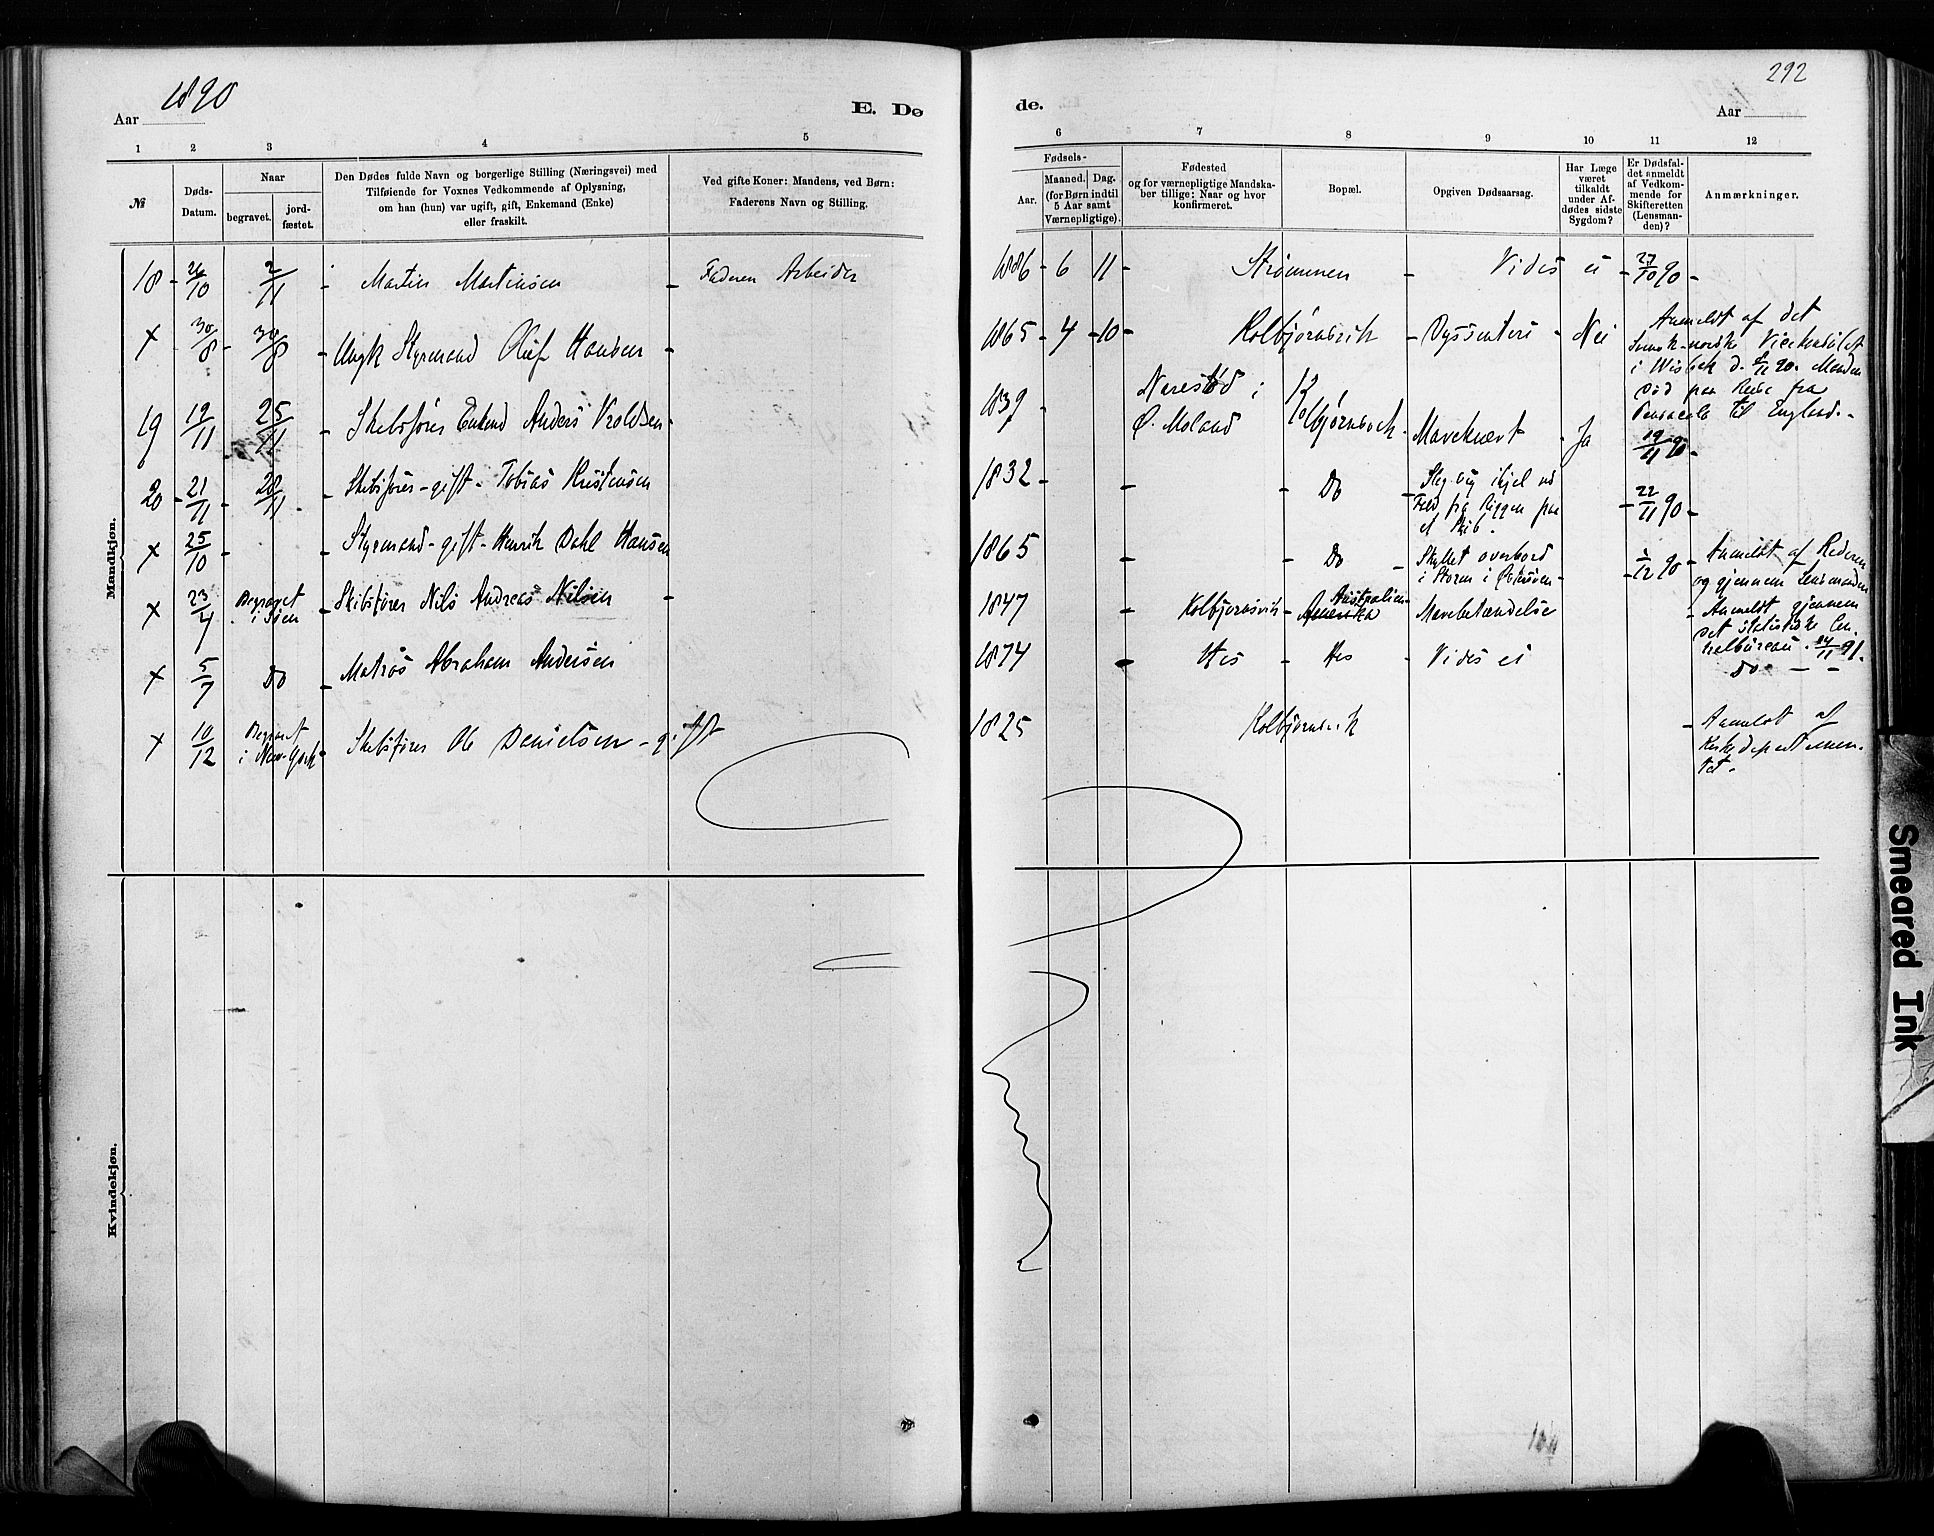 292
1890
Aar
E. Dø
de.
Aar
1 2 3 4 5
6 7 8 9 10 11 12
№
Døds-
Datum.
Naar
begravet.
jord-
fæstet.
Den Dødes fulde Navn og borgerlige Stilling (Næringsvei) med
Tilføiende for Voxnes Vedkommende af Oplysning,
om han (hun) var ugift, gift, Enkemand (Enke)
eller fraskilt.
Ved gifte Koner: Mandens, ved Børn:
Faderens Navn og Stilling.
Fødsels-
Aar.
Maaned. Dag.
(for Børn indtil
5 Aar samt
Værnepligtige).
Fødested
og for værnepligtige Mandska-
ber tillige: Naar og hvor
konfirmeret.
Bopæl.
Opgiven Dødsaarsag.
Har Læge
været
tilkaldt
under Af-
dødes sidste
Sygdom?
Er Dødsfal-
det anmeldt
af Vedkom-
mende for
Skifteretten
(Lensman-
den)?
Anmærkninger.
Mandkjøn.
18 - 26/10 2/11 - Martin Martinsen - Faderen Arbeider
1886 - 6 11 - Strømmen - Vides ei - 27/10 90 -
x 30/8 - 30/8 - Ungk Styrmand Oluf Hansen -
1865 - 4 - 10 - Kolbjørnsvik - Dyssenteri - Nei
Anmeldt af det
Svensk-norske Vicekonsulat
i Wisbek d. 90. Manden
død paa Reise fra
Pensacola til England. -
19 19/11 25/11 - Skibsfører Enkemd Anders Vroldsen -
1839 - Narestød i
Ø. Moland
Kolbjørnsvik - Mavekræft - Ja 19/11 90 -
20 - 21/11 - 28/11 - Skibsfører - gift - Tobias Kristensen
1832 - - - Do - Slog sig ihjel ved
Fald fra Riggen paa
et Skib.
- 22/11 90 -
x 25/10 - - Styrmand - gift - Henrik Dahl Hansen
1865 - - Do - Skyllet overbord
i Storm i Østersøen -
- /12 90 - Anmeldt af Rederen
og gjennem Lensmanden
x 23/4 Begravet
i Søen - Skibsfører Nils Andreas Nilsen -
1847 - Kolbjørnsvik - Amerika Australien - Mavebetændelse
- Anmeldt gjennem
det statistiske Cen-
tralbureau. 14/11 91.
x 5/7 Do - Matros Abraham Andersen
1874 - His - His - Vides ei
Do - -
x 10/12 Begravet
i New-York - Skibsfører Ole Danielsen - gift
1825 Kolbjørnsvik
- Anmeldt af
Kirkedepartemen-
tet.
Kvindekjøn.
Smeared Ink